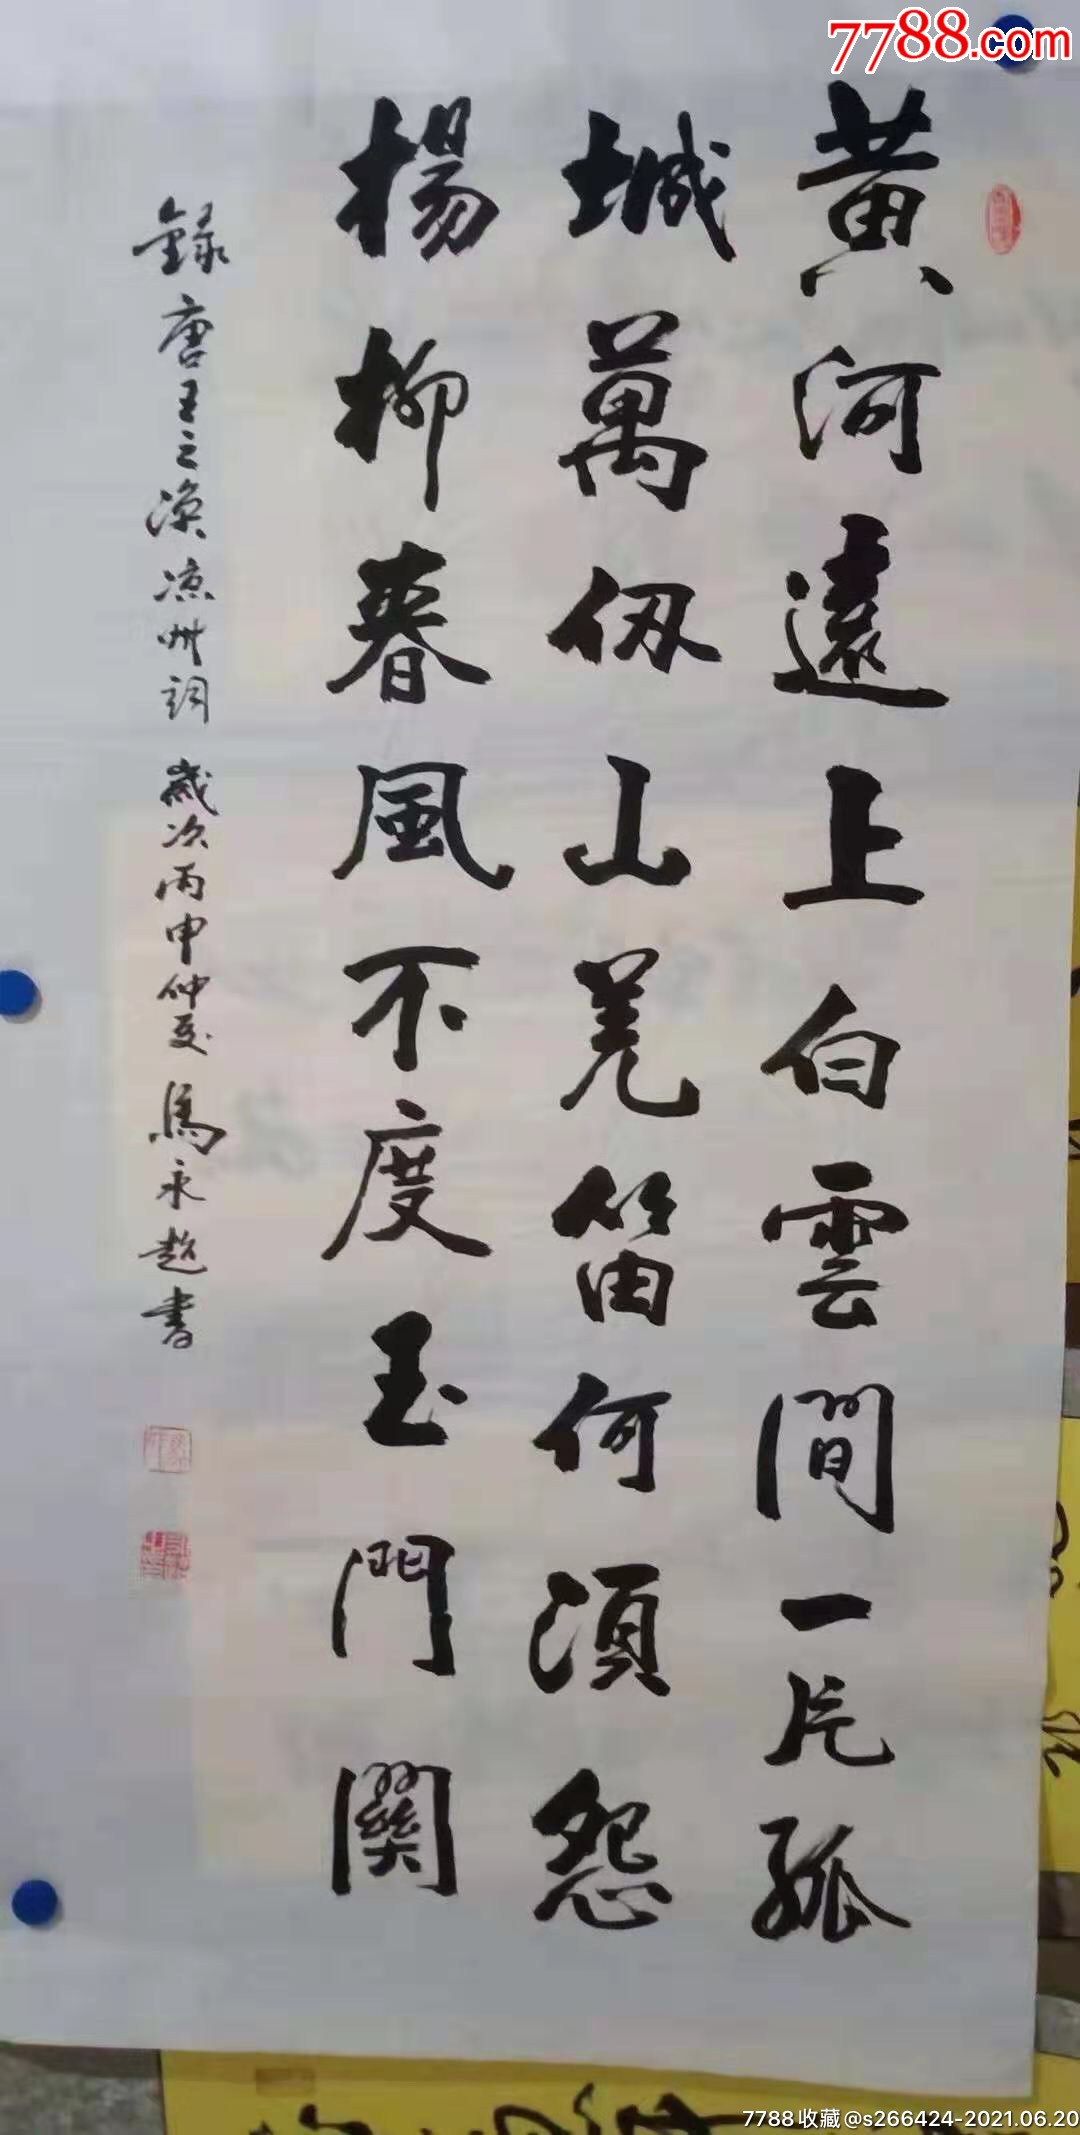 7788.com
黄河遠上白雲間一片孤
城萬仞山羌笛何須怨
楊柳春風不度玉門關
録唐王之渙凉州詞 歲次丙申仲夏 馬永超書
7788收藏@s266424-2021.06.20